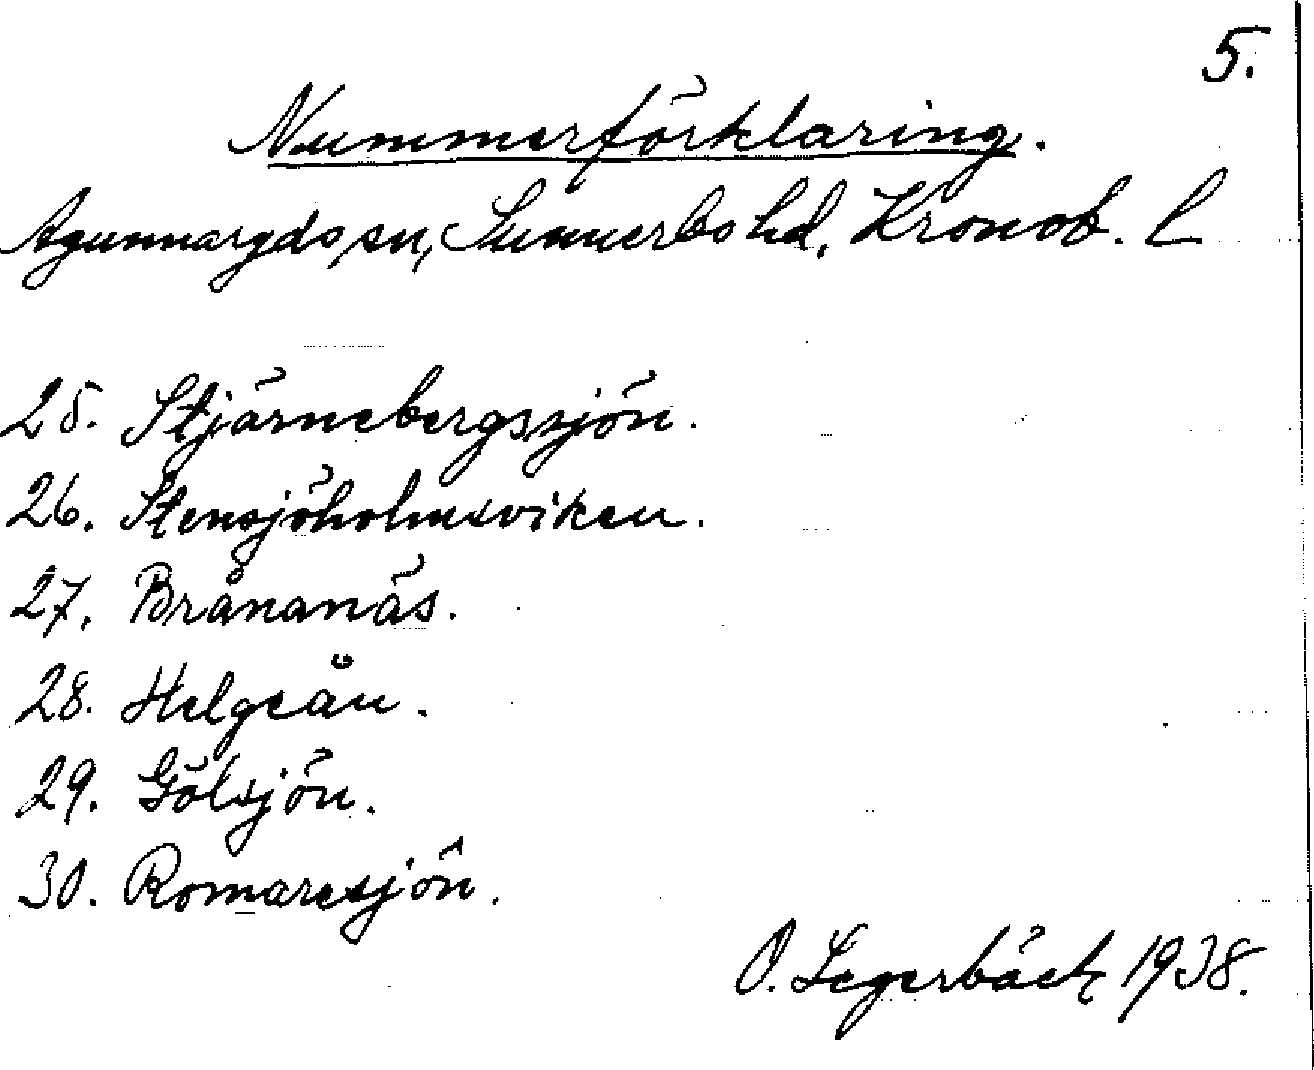 5.
Nummerförklaring.
Agunnaryds sn, Sunnerbo hd. Kronob. l
25. Stjärnebergssjön.
26. Stensjöholmsviken.
27. Brånanäs.
28. Helgeån.
29. Gölsjön.
30. Romaresjön.
O. Segerbäck 1938.